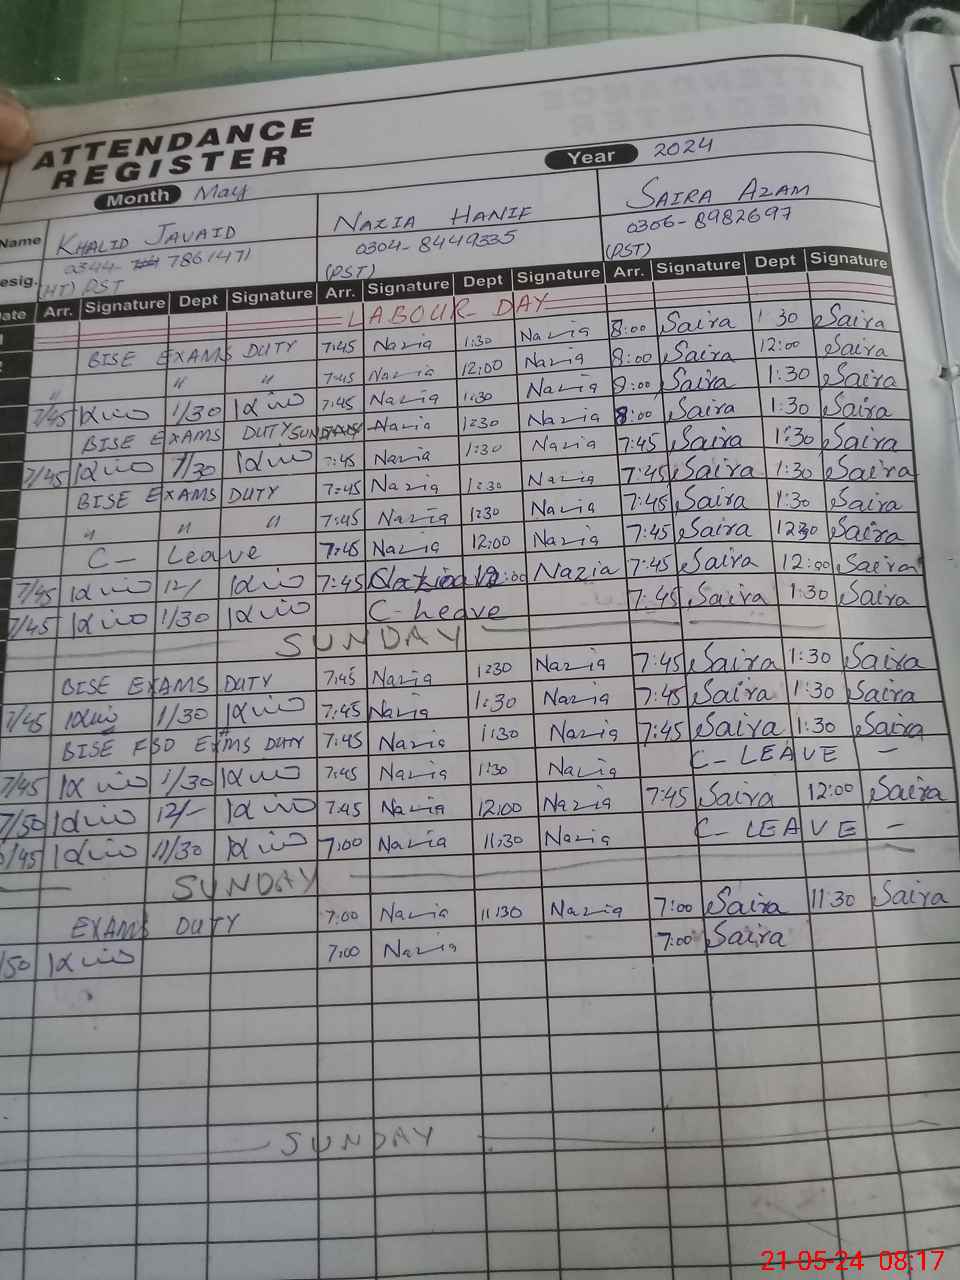 ATTENDANCE
REGISTER
Month May
Year 2024
Name KHALID JAVAID NAZIA HANIF SAIRA AZAM
0344- 7861471 0304-8449335 0306-8982697
Desig. (HT) PST (PST) (PST)
Date Arr. Signature Dept Signature Arr. Signature Dept Signature Arr. Signature Dept Signature
LABOUR DAY
BISE EXAMS DUTY 7:45 Nazia 1:30 Nazia 8:00 Saira 1:30 Saira
" " " 7:45 Nazia 12:00 Nazia 8:00 Saira 12:00 Saira
7/45 1/30 7:45 Nazia 1:30 Nazia 8:00 Saira 1:30 Saira
BISE EXAMS DUTY SUNDAY Nazia 1:30 Nazia 8:00 Saira 1:30 Saira
7/45 1/30 7:45 Nazia 1:30 Nazia 7:45 Saira 1:30 Saira
BISE EXAMS DUTY 7:45 Nazia 1:30 Nazia 7:45 Saira 1:30 Saira
" " " 7:45 Nazia 1230 Nazia 7:45 Saira 1:30 Saira
C- Leave 7:45 Nazia 12:00 Nazia 7:45 Saira 1230 Saira
7/45 12/ 7:45 Nazia 12:00 Nazia 7:45 Saira 12:00 Saira
7/45 1/30 C-Leave 7:45 Saira 1:30 Saira
SUNDAY
BISE EXAMS DUTY 7:45 Nazia 1230 Nazia 7:45 Saira 1:30 Saira
7/45 1/30 7:45 Nazia 1:30 Nazia 7:45 Saira 1:30 Saira
BISE FSD EXAMS DUTY 7:45 Nazia 1:30 Nazia 7:45 Saira 1:30 Saira
7/45 1/30 7:45 Nazia 1:30 Nazia C- LEAVE -
7/50 12/- 7:45 Nazia 12:00 Nazia 7:45 Saira 12:00 Saira
/45 11/30 7:00 Nazia 11:30 Nazia C- LEAVE -
SUNDAY
EXAMS DUTY 7:00 Nazia 11:30 Nazia 7:00 Saira 11:30 Saira
/50 7:00 Nazia 7:00 Saira
SUNDAY
21-05-24 08:17